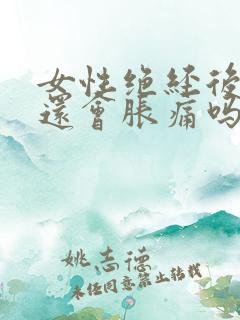 女性绝经後
還會脹痛吗
姚志德
未经同意禁止转载